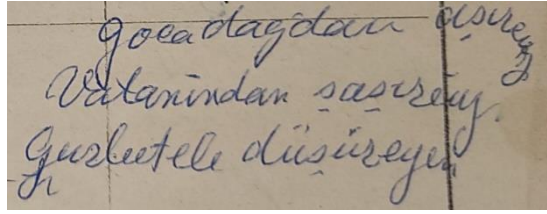 goca dagdan aşıreyy
Vatanından şaşıreyy.
Gurbetele düşüreyen